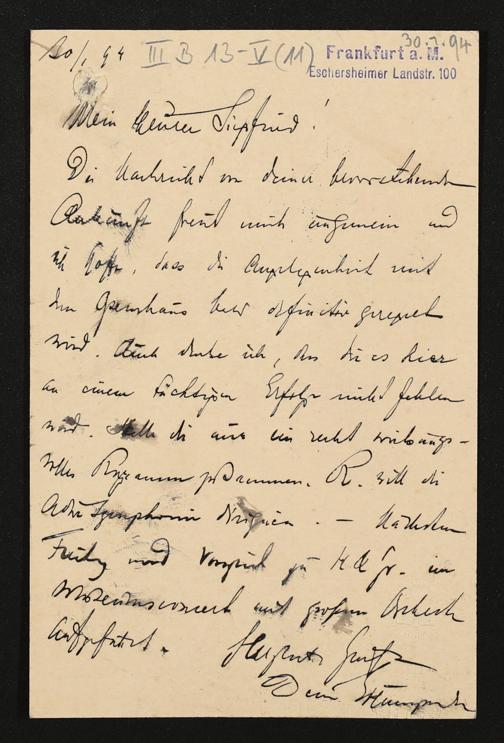 30/1 94 III B 13-V (11) 30.1.94
Frankfurt a. M.
Eschersheimer Landstr. 100
Mein theurer Siegfried!
Die Nachricht von deiner bevorstehenden
Ankunft freut mich ungemein und
ich hoffe, dass die Angelegenheit mit
dem Opernhaus bald definitiv geregelt
wird. Auch denke ich, dass dir es hier
an einem tüchtigen Erfolge nicht fehlen
wird. Stelle dir nur ein recht wirkungs-
volles Programm zusammen. R. will die
Symphonie dirigieren. — Nächsten
Freitag wird Vorspiel zu H & Gr. im
Museumsconcert mit großem Orchester
aufgeführt. Herzliche Grüße
Dein Humperdinck